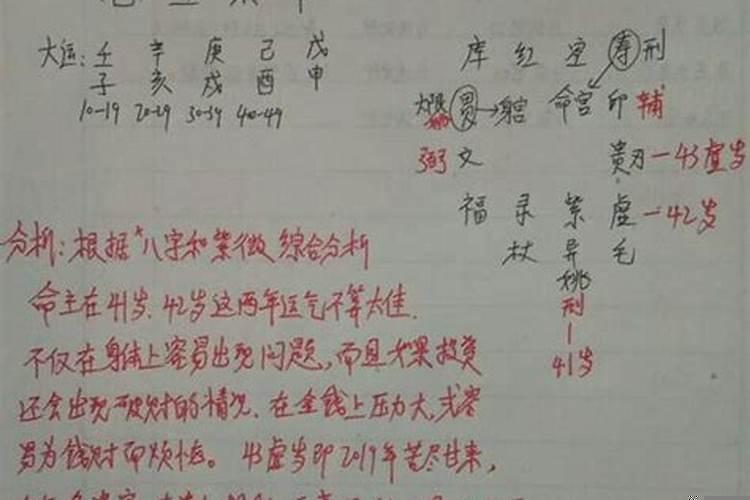 大运: 壬 辛 庚 己 戊
子 亥 戌 酉 申
10-19 20-29 30-39 40-49
库 红 空 寿 刑
大限 贯→身宫 命宫 印 辅
弼 文 贵刃—43虚岁
福 录 紫 虚—42岁
杖 异 毛
姚
刑
41岁
分析: 根据八字和紫微综合分析
命主在41岁、42岁这两年运气不算太佳.
不仅在身体上容易出现问题,而且如果投资
还会出现破财的情况、在金钱上压力大,或容
易为钱财而烦恼。43虚岁即2019年苦尽甘来,